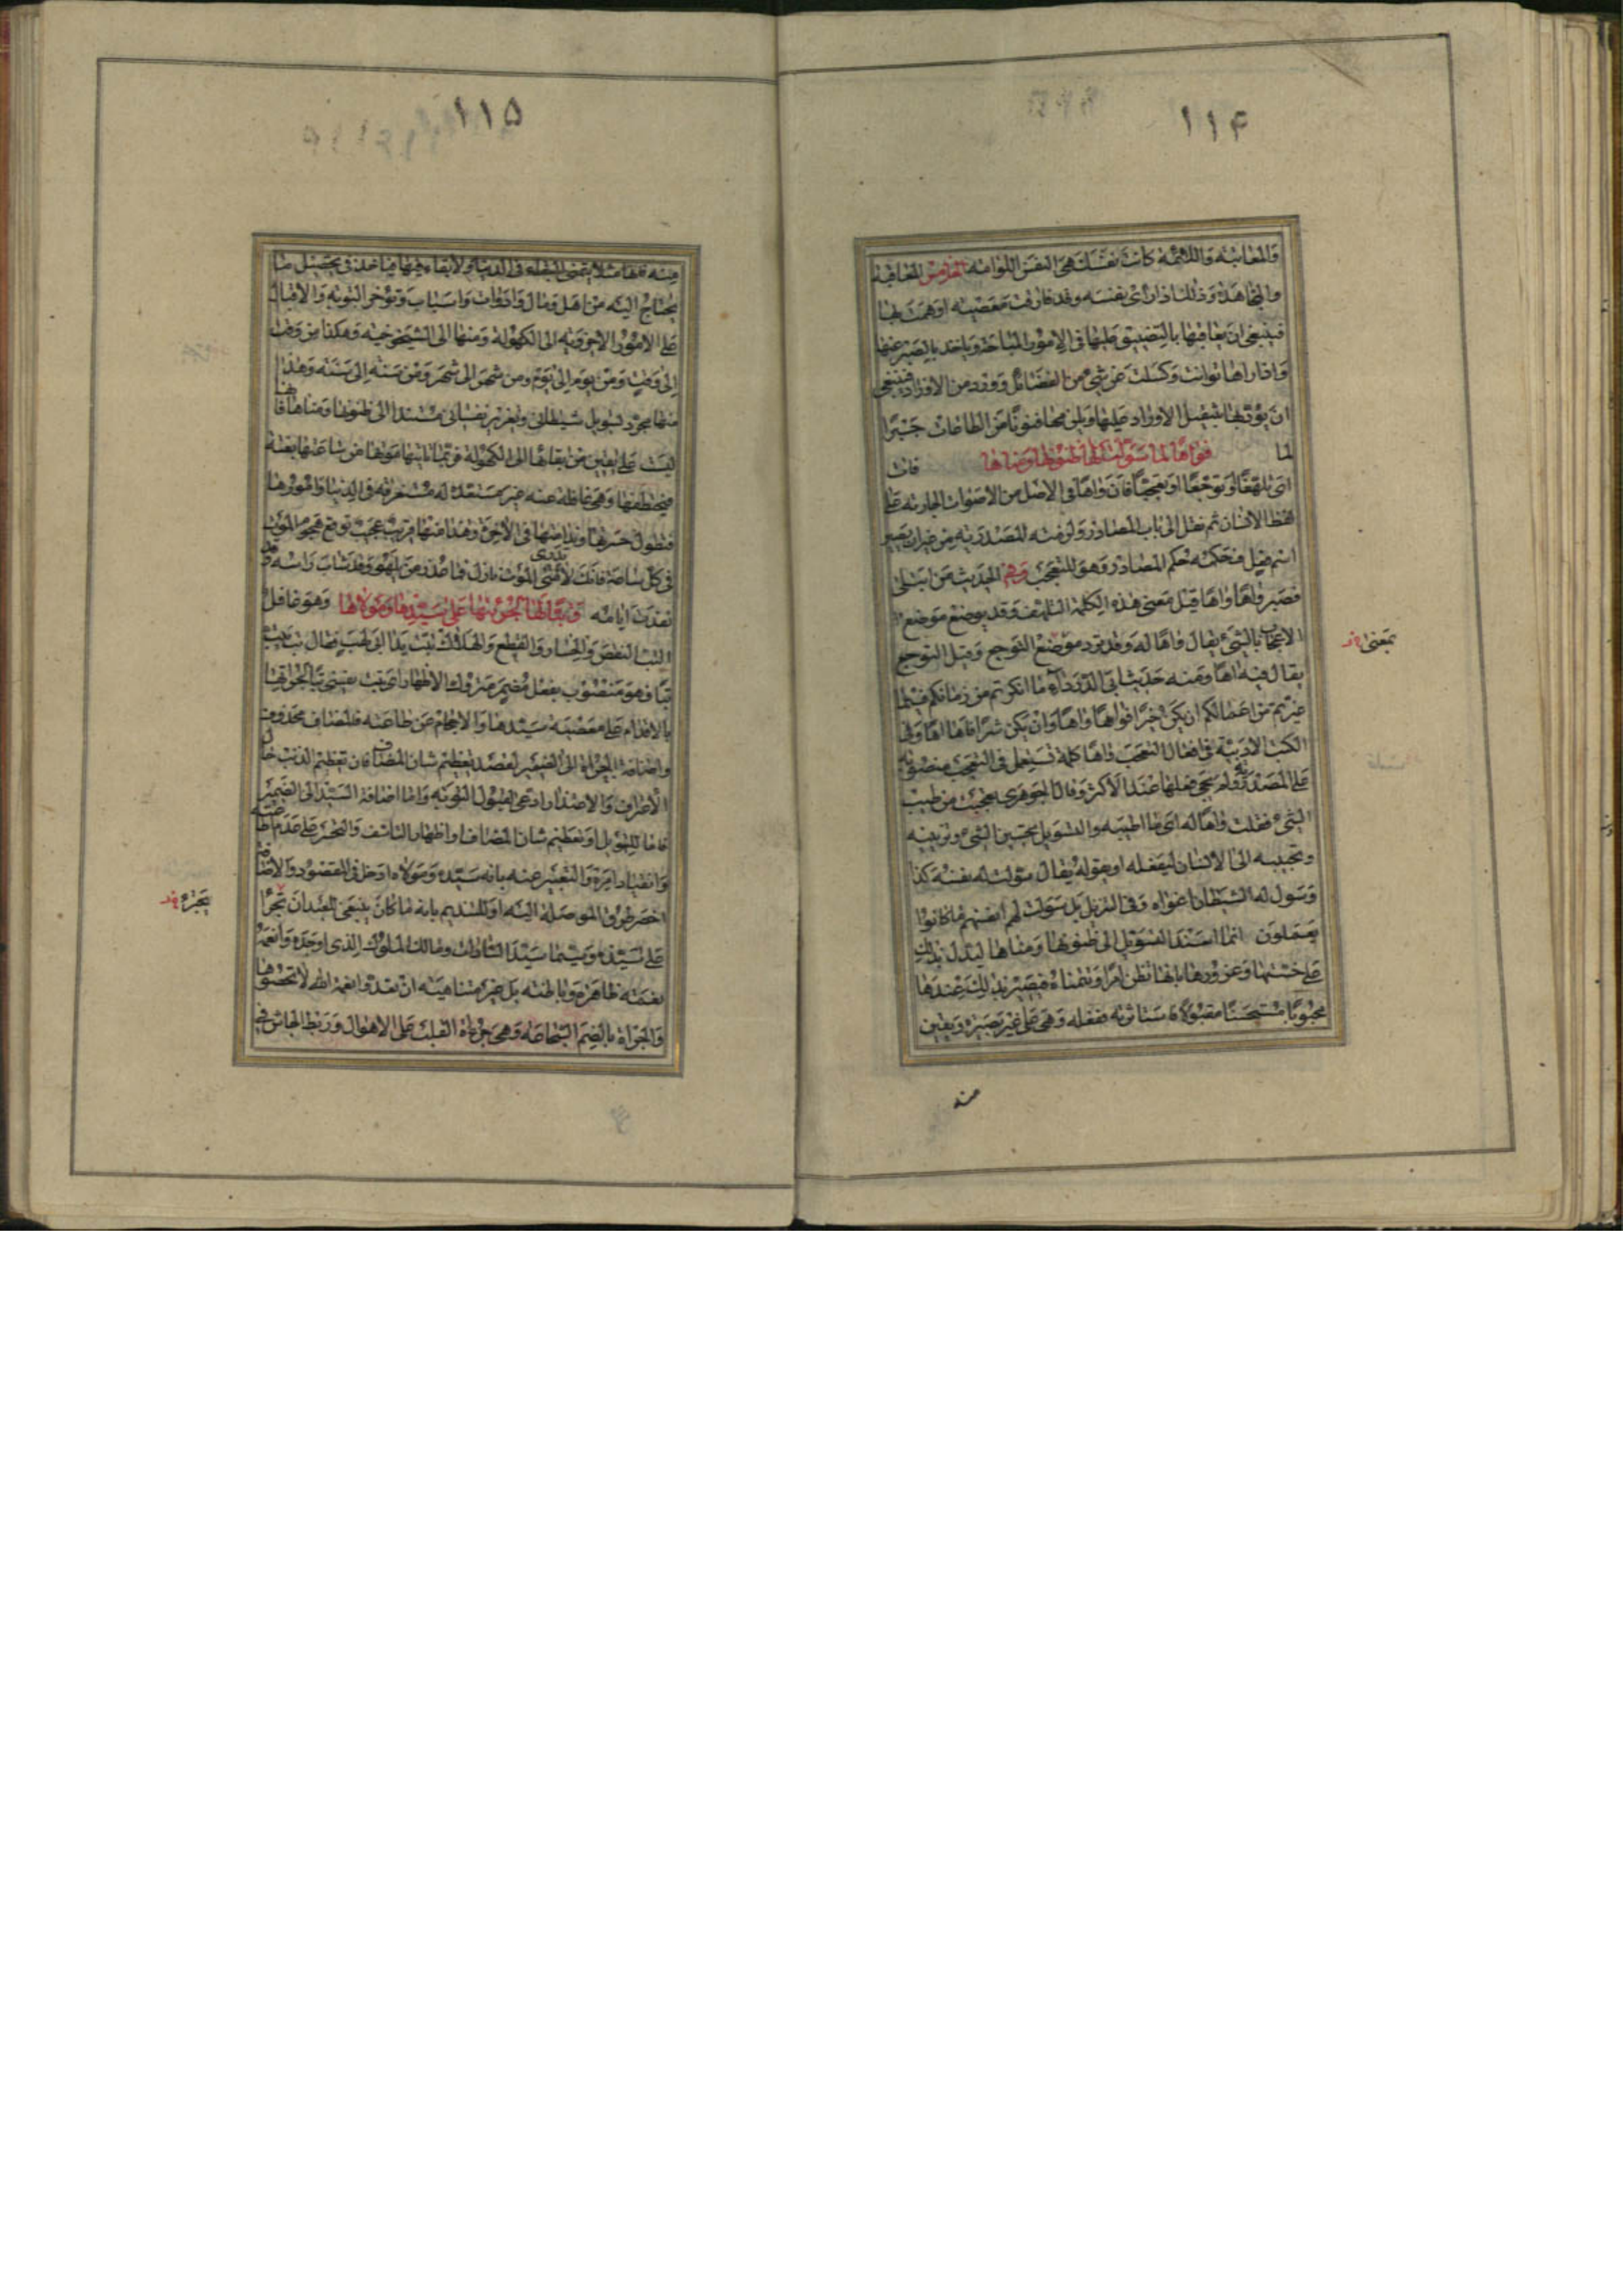 ١١۴
والمعاتبة واللائمة كانت نفسك هي النفس اللوامة الخامس المعاقبة
والمجاهدة وذلك اذا رأى نفسه وقد قارفت معصية او همت بها
فينبغي ان يعاقبها بالتضييق عليها في الامور المباحة وياخذ بالصبر عنها
واذا راها توانت وكسلت عن شيء من الفضائل وورد من الاوراد فينبغي
ان يؤدبها بتثقيل الاوراد عليها ويلزمها فنونا من الطاعات جبرا
لما فات فواها لما سولت لها ظنونها ومناها
اي تلهفا وتوجعا او تعجبا فان واها في الاصل من الاصوات الجارية على
لفظ الانسان ثم نقل الى باب المصادر ولزمته المصدرية من غير ان يصير
اسم فعل فحكمه حكم المصادر وهو للتعجب وفي الحديث من ابتلى
فصبر فواها واها قيل معنى هذه الكلمة التلهف وقد يوضع موضع
الاعجاب بالشيء يقال واها له وقد ترد موضع التوجع وقيل التوجع
يقال فيه اها ومنه حديث ابي الدرداء ما انكرتم من زمانكم فيما
غيرتم من اعمالكم ان يكن خيرا فواها واها وان يكن شرا فاها اها وفي
الكتب الادبية في افعال التعجب واها كلمة تستعمل في التعجب منصوبة
على المصدرية ولم يجئ فعلها عند الاكثر وقال الجوهري اذا تعجبت من طيب
الشيء فقلت واها له اي ما اطيبه والتسويل تحسين الشيء وتزيينه
وتحبيبه الى الانسان ليفعله او يقوله يقال سولت له نفسه كذا
وسول له الشيطان اغواه وفي التنزيل بل سولت لهم انفسهم ما كانوا
يعملون انما اسند التسويل الى ظنونها ومناها ليدل بذلك
على خستها وغرورها بانها تظن امرا وتتمناه فيصير بذلك عندها
محبوبا مستحسنا مقبولا فاستاثرته ففعله وهي على غير بصيرة ويقين
بمعنى
منه
١١۵
منه فلها مثلا يقتضي البقاء في الدنيا ولابقاء فيها فياخذ في تحصيل ما
يحتاج اليه من اهل ومال وادوات واسباب وتؤخر التوبة والاقبال
على الامور الاخروية الى الكهولة ومنها الى الشيخوخية وهكذا من وقت
الى وقت ومن يوم الى يوم ومن شهر الى شهر ومن سنة الى سنة وهذا
منها مجرد تسويل شيطاني وتغرير نفساني مستندا الى ظنونها ومناها فانها
ليست على يقين من بقائها الى الكهولة فربما ياتيها موتها من ساعتها بغتة
فيختطفها وهي غافلة عنه غير مستعدة له مستغرقة في الدنيا وامورها
فتطول حسرتها وندامتها في الاخرة وهذا منها غريب عجيب توقع هجوم الموت
في كل ساعة فانك لا تدري متى الموت نازل فما عذر من يلهو وقد شاب راسه وقد
نفدت ايامه وهو غافل وتبا لها لجرأتها على سيدها ومولاها
التب النقص والخسار والقطع والهلاك تبت يدا ابي لهب يقال تب يتب
تبا فهو منصوب بفعل مضمر متروك الاظهار اي تبت نفسي تبا لجراتها
بالاقدام على معصية سيدها والاحجام عن طاعته فالمضاف محذوف
واضافة الجراة الى الضمير لقصد تعظيم شان المضاف فان تعظيم الذنب
الاعتراف والاعتذار ادعى لقبول التوبة واما اضافة السيد الى الضمير
فاما للتهويل او تعظيم شان المضاف او اظهار التاسف والتحسر على عدم اطاعته
وانقياد امره والتعبير عنه بانه سيده ومولاه ادخل في المقصود والاضافة
اخصر طرق الموصلة اليه او للتنديم بانه ما كان ينبغي للعبد ان تجرا
على سيده وسيما سيد السادات ومالك الملوك الذي اوجده وانعمه
نعمته ظاهرة وباطنة بل غير متناهية ان تعدوا نعمة الله لا تحصوها
والجراة بالضم الشجاعة وهي جرأة القلب على الاهوال وربط الجاش في
تجره